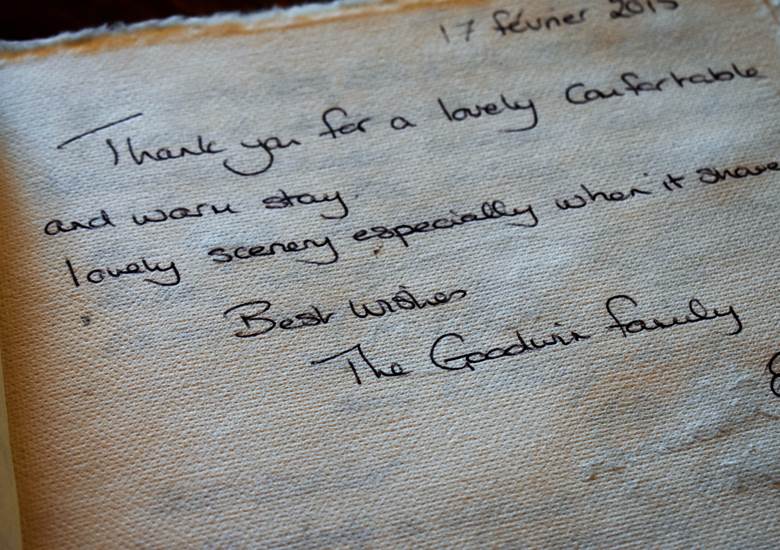 17 février 2015
Thank you for a lovely Comfortable
and warm stay.
lovely scenery especially when it snowe
Best wishes
The Goodwin family